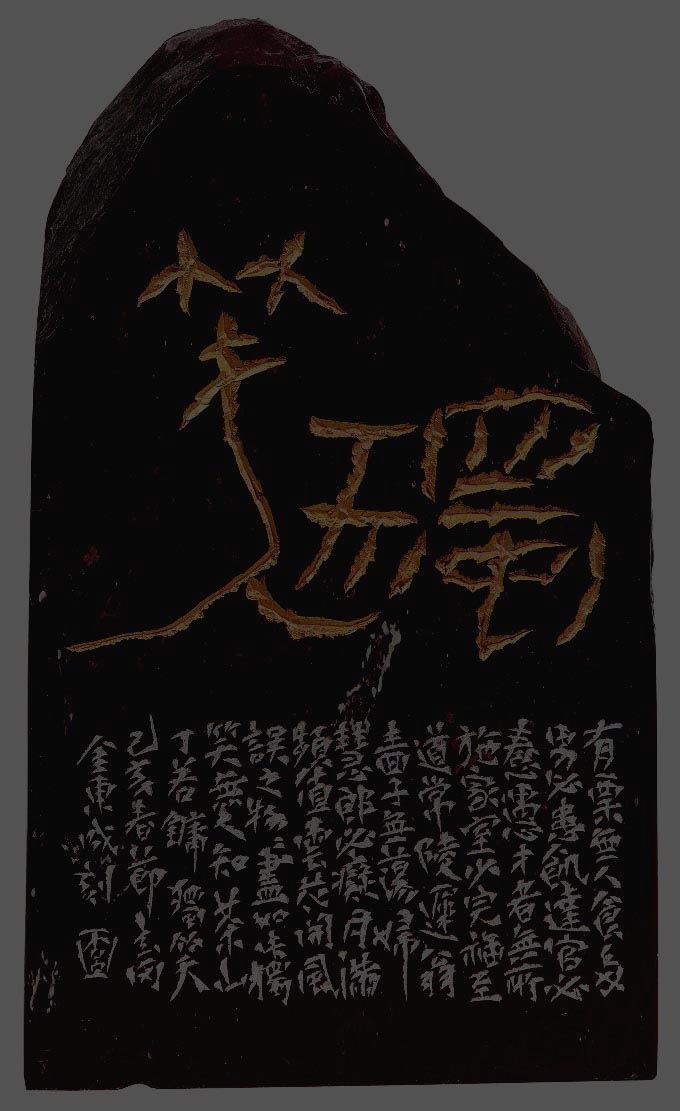 獨笑
有粟無人食多
男必患飢達官必
憃愚才者無所
施家室少完福至
道常陵遲翁
嗇子每蕩婦
慧郎必癡月滿
頻值雲花開風
誤之物〻盡如此獨
笑無人知茶山
丁若鏞 獨笑
己亥春節
金東成刻